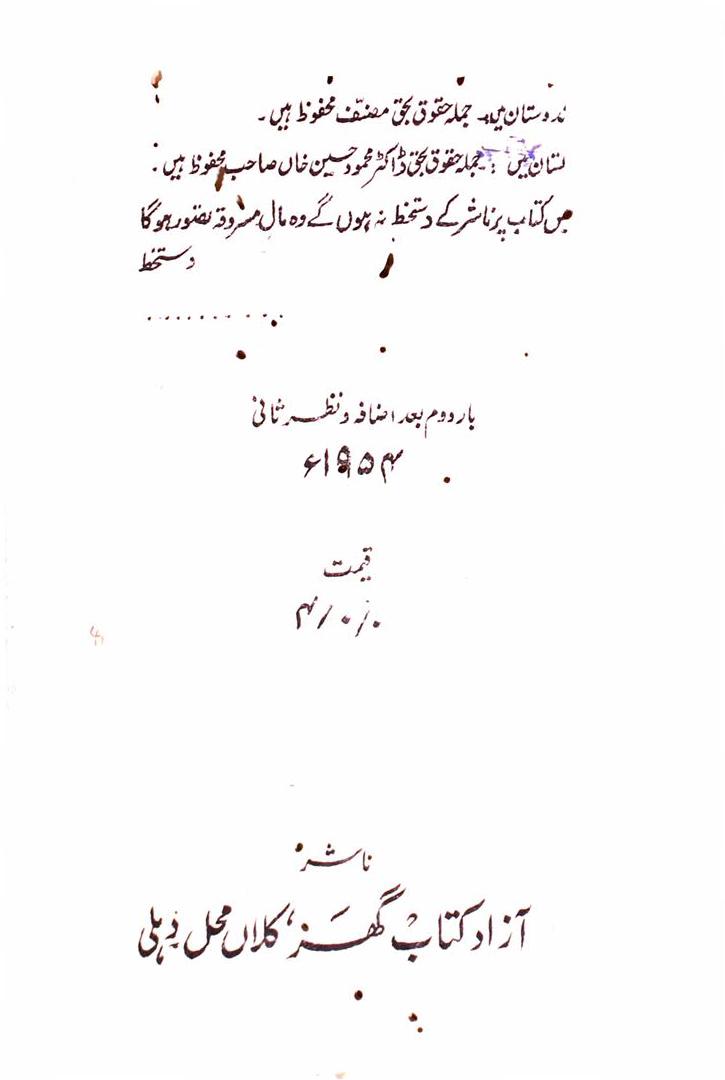 ندوستان میں۔ جملہ حقوق بحق مصنّف محفوظ ہیں۔
ستان میں : جملہ حقوق بحق ڈاکٹر محمود حسین خاں صاحب محفوظ ہیں۔
جس کتاب پر ناشر کے دستخط نہ ہوں گے وہ مالِ مسروقہ تصور ہوگا
دستخط
..........
بار دوم بعد اضافہ و نظر ثانی
۱۹۵۴ء
قیمت
۴/۰/۰
ناشر
آزاد کتاب گھر، کلاں محل دہلی